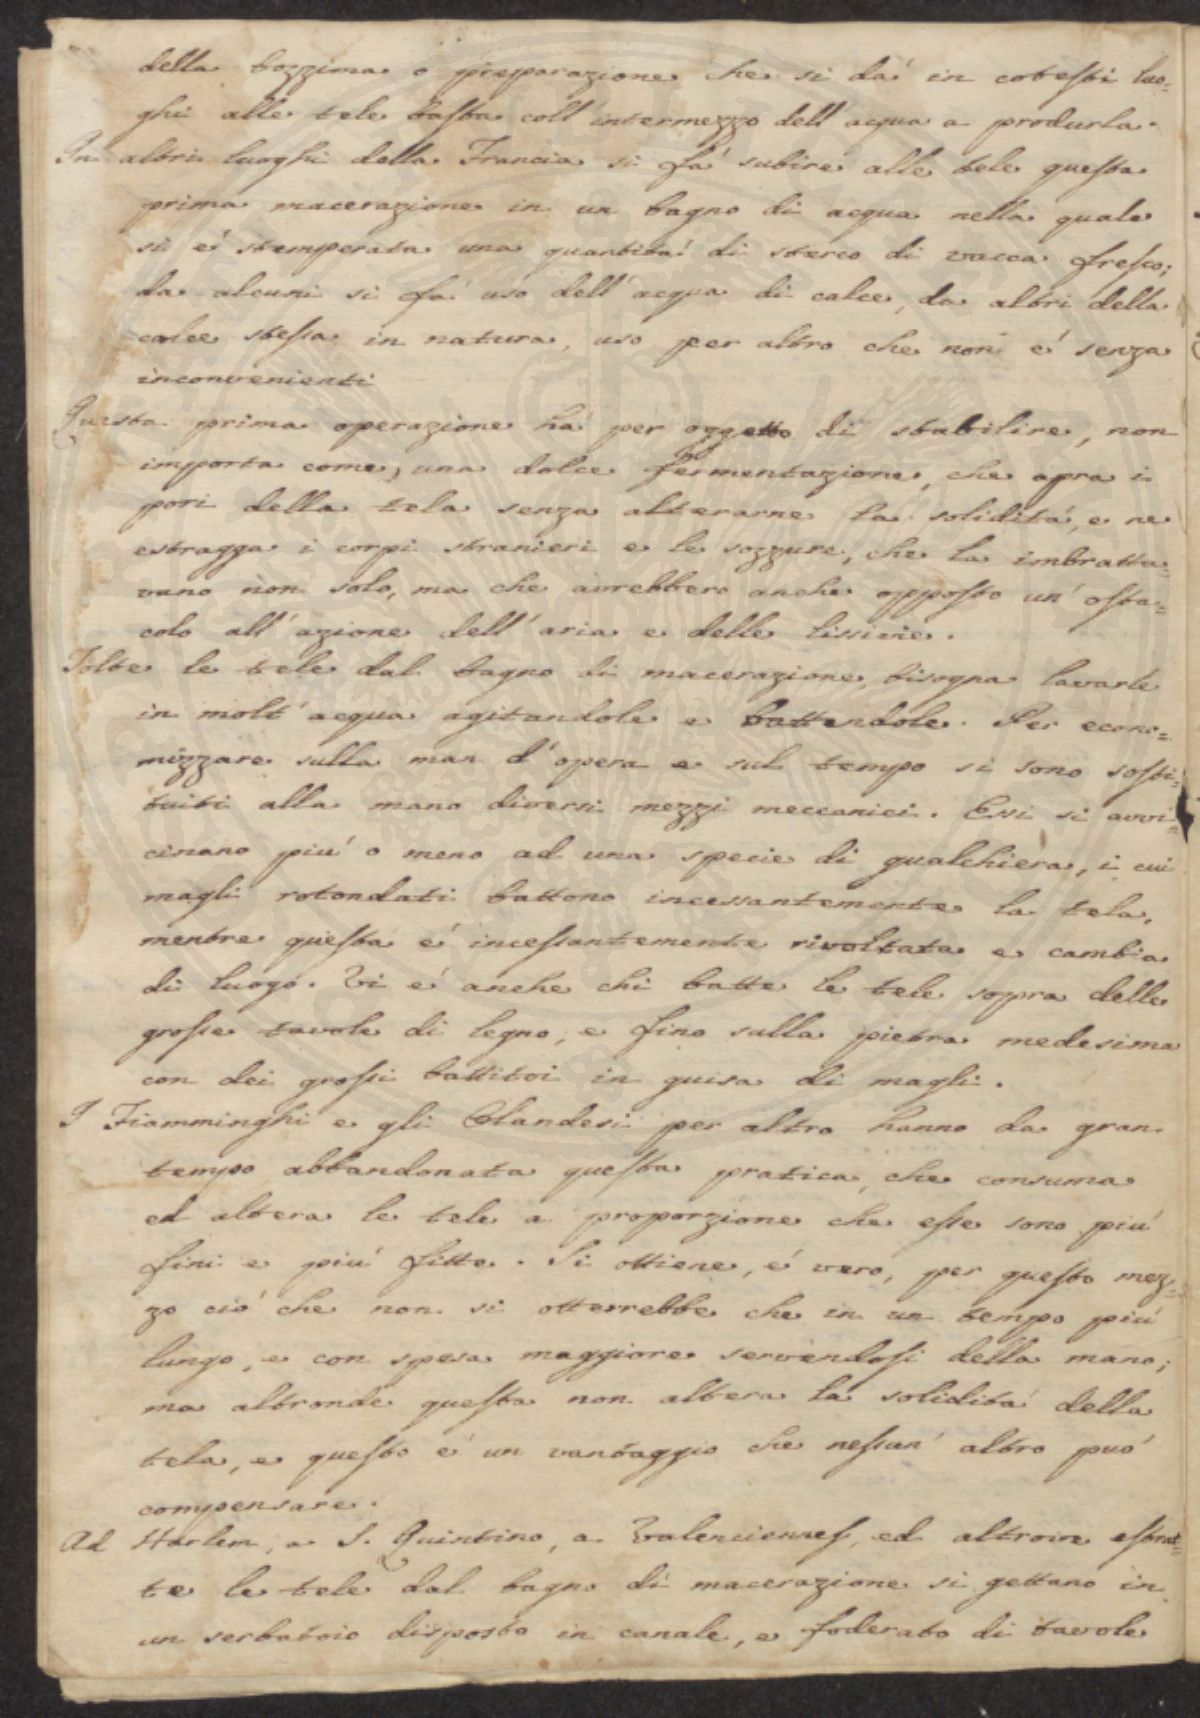 della bozzima o preparazione che si dá in cotesti luo=
ghi alle tele basta coll'intermezzo dell'acqua a produrla.
In altri luoghi della Francia si fá subire alle tele questa
prima macerazione in un bagno di acqua nella quale
si é stemperata una quantitá di sterco di vacca fresco;
da alcuni si fá uso dell'acqua di calce, da altri della
calce stessa in natura, uso per altro che non é senza
inconvenienti
Questa prima operazione há per oggetto di stabilire, non
importa come, una dolce fermentazione, che apra i
pori della tela senza alterarne la soliditá, e ne
estragga i corpi stranieri e le sozzure, che la imbratta=
vano non solo, ma che avrebbero anche opposto un'osta=
colo all'azione dell'aria e delle lissivie.
Tolte le tele dal bagno di macerazione, bisogna lavarle
in molt'acqua agitandole e battendole. Per econo=
mizzare sulla man d'opera e sul tempo si sono sosti=
tuiti alla mano diversi mezzi meccanici. Essi si avvi=
cinano piú o meno ad una specie di gualchiera, i cui
magli rotondati battono incessantemente la tela,
mentre questa é incessantemente rivoltata e cambia
di luogo. Vi é anche chi batte le tele sopra delle
grosse tavole di legno, e fino sulla pietra medesima
con dei grossi battitoi in guisa di magli.
I Fiamminghi e gli Olandesi per altro hanno da gran
tempo abbandonata questa pratica, che consuma
ed altera le tele a proporzione che esse sono piú
fini e piú fitte. Si ottiene, é vero, per questo mez=
zo ció che non si otterrebbe che in un tempo piú
lungo, e con spesa maggiore servendosi della mano;
ma altronde questa non altera la soliditá della
tela, e questo é un vantaggio che nessun'altro puó
compensare.
Ad Harlem, a S. Quintino, a Valenciennes, ed altrove estrat=
te le tele dal bagno di macerazione si gettano in
un serbatoio disposto in canale, e foderato di tavole